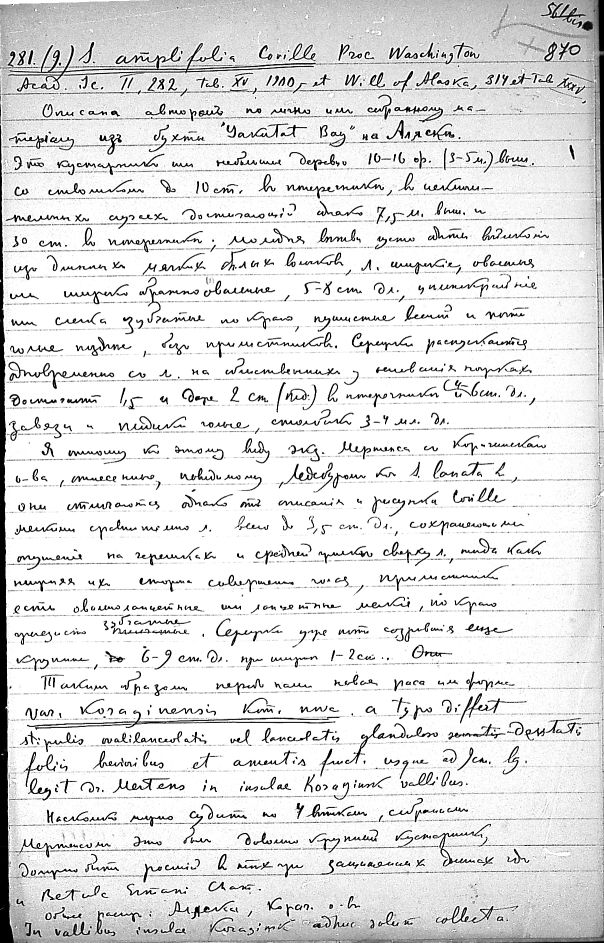 561bis
870
281. (9.) S. amplifolia Coville Proc Waschington
Acad. Sc. II, 282, tab. XV, 1900, et Will of Alaska, 314 et Tab XXXV,
Описана авторомъ по лично им собранному ма-
теріалу изъ бухты "Yakutat Bay" на Аляскѣ.
Это кустарникъ или небольшое деревцо 10-16 фр. (3-5 м.) выш.
со стволикомъ до 10 ст. въ поперечникѣ, въ исключи-
тельныхъ случаяхъ достигающій однако 7,5 м. выш. и
30 ст. въ поперечникѣ; молодыя вѣтви густо одѣты войлокомъ
изъ длинныхъ мягкихъ бѣлыхъ волосковъ, л. широкіе, овальные
или широко обратно овальные, 5-8 ст. дл., цѣльнокрайніе
или слегка зубчатые по краю, пушистые весной и почти
голые позднѣе, безъ прилистниковъ. Сережки распускаются
одновременно со л. на облиственныхъ у основанія
достигаютъ 1,5 и даже 2 ст. (плод.) въ поперечникѣ и 6 ст. дл.,
завязи и ножки голые, столбики 3-4 мл. дл.
Я отношу къ этому виду экз. Мертенса съ Карагинскаго
о-ва, отнесенные, повидимому, Ледебуромъ къ S. lanata L,
они отличаются однако отъ описанія и рисунка Coville
мелкими сравнительно л. всего до 3,5 ст. дл., сохраненіемъ
опушенія на черешкахъ и средней жилкѣ сверху л., тогда какъ
нижняя ихъ сторона совершенно голая, прилистники
есть овальноланцетные или ланцетные мелкіе, по краю
железисто зубчатые. Сережки уже почти созрѣвшія еще
крупнѣе, 6-9 ст. дл. при ширинѣ 1-2 ст.. Они
Такимъ образомъ передъ нами новая раса или форма
var. Koraginensis Kom. nova. a typo differt
stipulis ovalilanceolatis vel lanceolatis glanduloso serratis-dentatis
foliis brevioribus et amentis fruct. usque ad 9 cm. lg.
legit Dr. Mertens in insulae Koraginsk vallibus.
Насколько можно судить по 4 вѣткамъ, собраннымъ
Мертенсомъ это былъ довольно крупный кустарникъ,
должно быть росшій въ тѣхъ же защищенныхъ долинахъ гдѣ
и Betula Ermani Cham.
Общее распр.: Аляска, Кораг. о-въ
In vallibus insulae Koraginsk adhuc solum collecta.